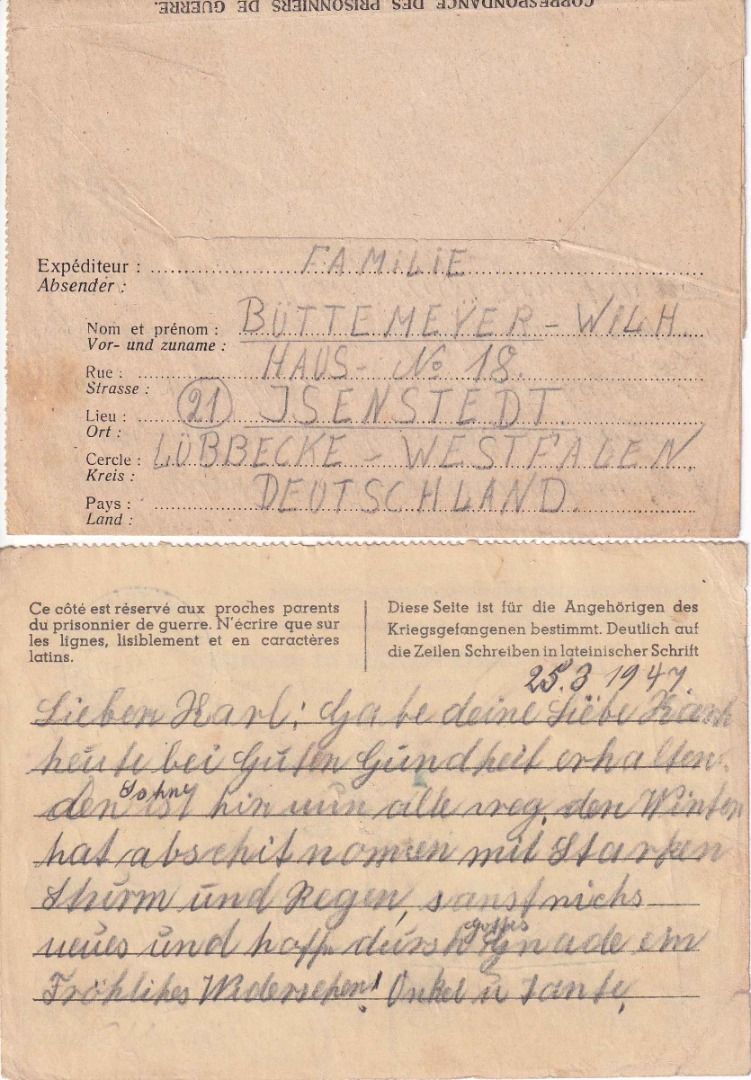 CORRESPONDANCE DES PRISONNIERS DE GUERRE.
Expéditeur : FAMILIE
Absender :
Nom et prénom : BÜTTEMEYER - WILH.
Vor- und zuname :
Rue : HAUS - No 18.
Strasse :
Lieu : (21) ISENSTEDT.
Ort :
Cercle : LÜBBECKE - WESTFALEN,
Kreis :
Pays : DEUTSCHLAND.
Land :
Ce côté est réservé aux proches parents
du prisonnier de guerre. N'écrire que sur
les lignes, lisiblement et en caractères
latins.
Diese Seite ist für die Angehörigen des
Kriegsgefangenen bestimmt. Deutlich auf
die Zeilen Schreiben in lateinischer Schrift
25.3 1947
Lieber Karl! Habe deine Liebe Karte
heute bei Guten Gundheit erhalten.
den Schne ist hir nun alle weg, den Winter
hat abschit nommen mit Starken
Sturm und Regen, sonst nichs
neues und hoffe dursh Gottes Gnade ein
Fröhliches Widersehen! Onkel u Tante,